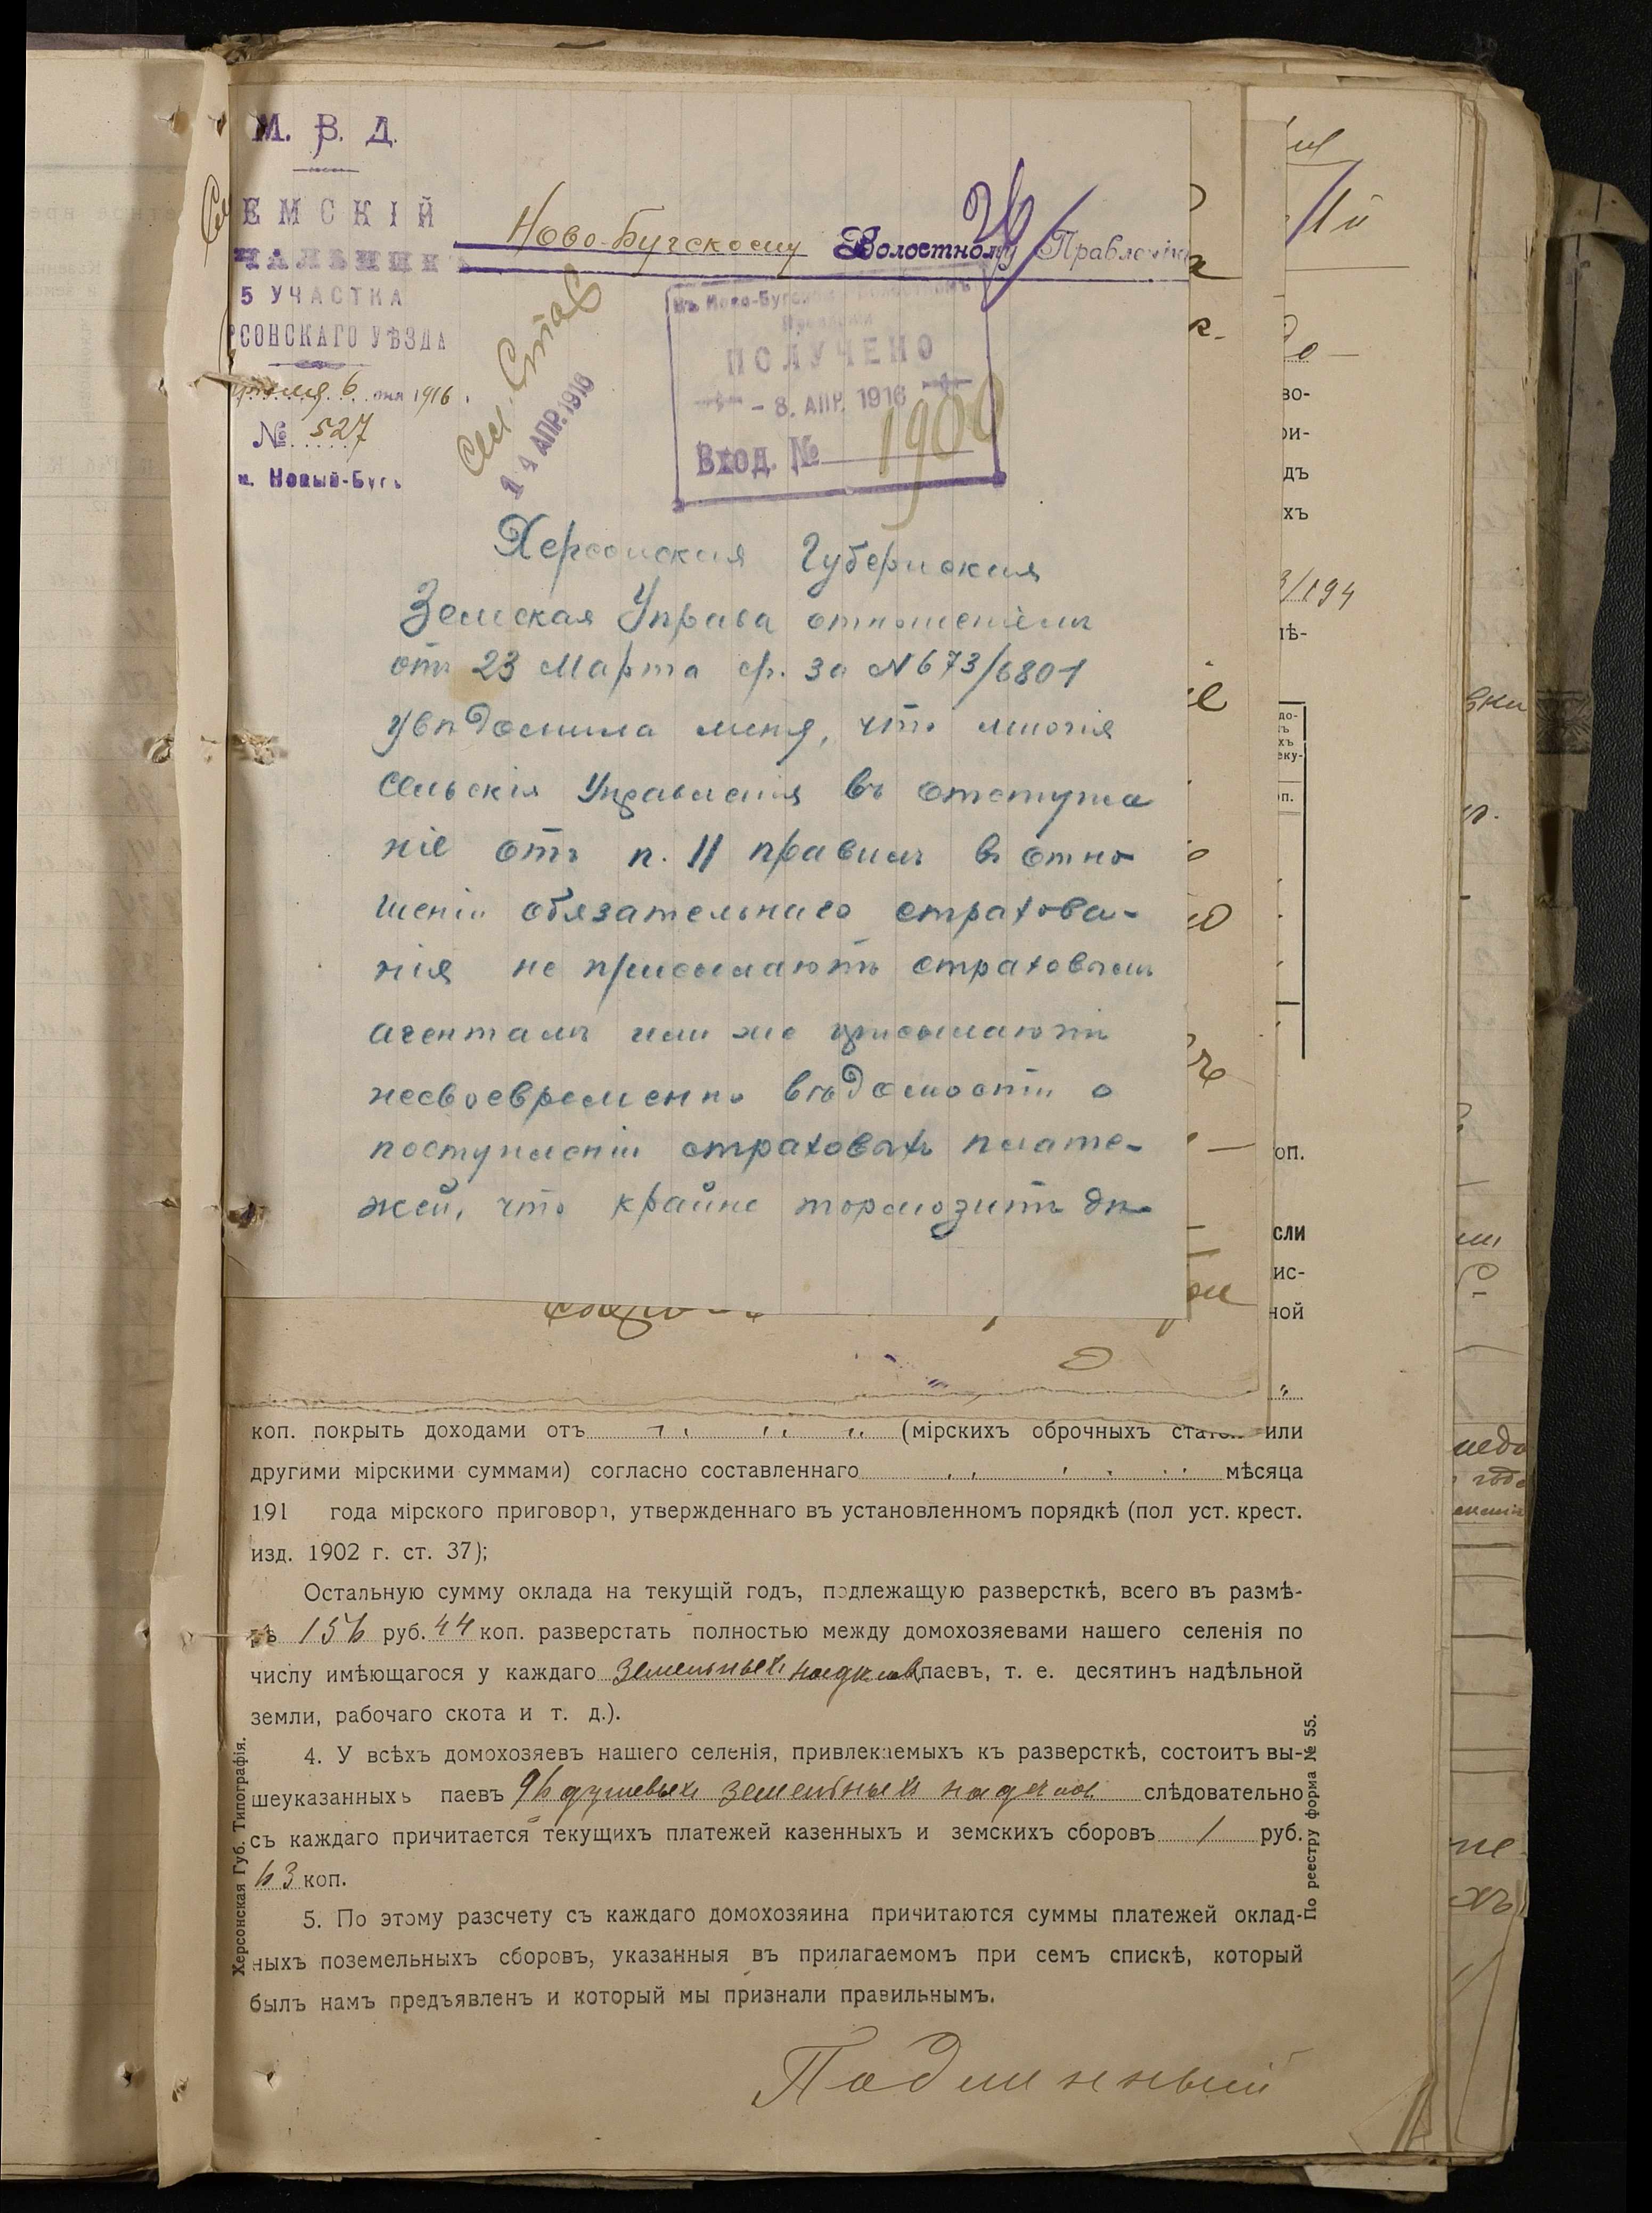 М. В. Д.
ЕМСКІЙ
ЧАЛЬНИК
5 УЧАСТКА
РСОНСКАГО УѢЗДА
6 дня 1916
№ 527
м. Новый-Бугъ
Ново-Бугскому Волостному Правленію
14 АПР. 1916
Въ Ново-Бугскомъ Волостномъ
Правленіи
ПОЛУЧЕНО
- 8. АПР. 1916
Вход. № 1900
Херсонская Губернская
Земская Управа отношеніемъ
отъ 23 Марта с/г. за N 673/6801
увѣдомила меня, что многія
сельскія Управленія въ отступле
ніе отъ п. 11 правилъ въ отно
шеніи обязательнаго страхова-
нія не присылаютъ страховымъ
агентамъ или же присылаютъ
несвоевременно вѣдомости о
поступленіи страховыхъ плате-
жей, что крайне тормозитъ дѣ-
коп. покрыть доходами отъ (мірскихъ оброчныхъ статей или
другими мірскими суммами) согласно составленнаго мѣсяца
191 года мірского приговора, утвержденнаго въ установленномъ порядкѣ (пол уст. крест.
изд. 1902 г. ст. 37);
Остальную сумму оклада на текущій годъ, подлежащую разверсткѣ, всего въ размѣ-
рѣ 156 руб. 44 коп. разверстать полностью между домохозяевами нашего селенія по
числу имѣющагося у каждаго земельныхъ надѣловъ паевъ, т. е. десятинъ надѣльной
земли, рабочаго скота и т. д.).
4. У всѣхъ домохозяевъ нашего селенія, привлекаемыхъ къ разверсткѣ, состоитъ вы-
шеуказанныхъ паевъ 96 душевыхъ земельныхъ надѣловъ слѣдовательно
съ каждаго причитается текущихъ платежей казенныхъ и земскихъ сборовъ 1 руб.
63 коп.
5. По этому разсчету съ каждаго домохозяина причитаются суммы платежей оклад-
ныхъ поземельныхъ сборовъ, указанныя въ прилагаемомъ при семъ спискѣ, который
былъ намъ предъявленъ и который мы признали правильнымъ.
Подлинный
Херсонская Губ. Типографія.
По реестру форма № 55.